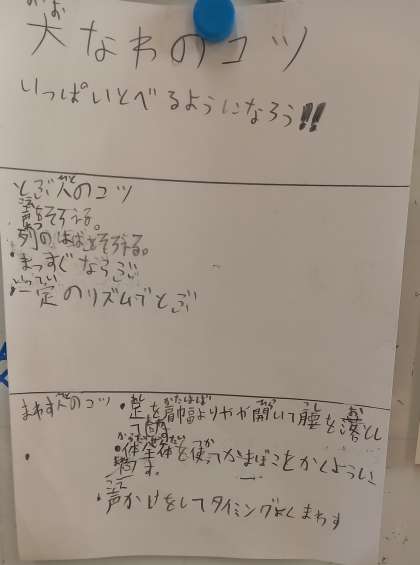 おお
大なわのコツ
いっぱいとべるようになろう!!
とぶ人のコツ
声をそろえる。
列のはばをそろえる。
・まっすぐならぶ
・一定のリズムでとぶ
まわす人のコツ
・足を肩幅よりやや開いて腰を落として
・体全体を使ってかまぼこをかくように
回す。
・声かけをしてタイミングよくまわす